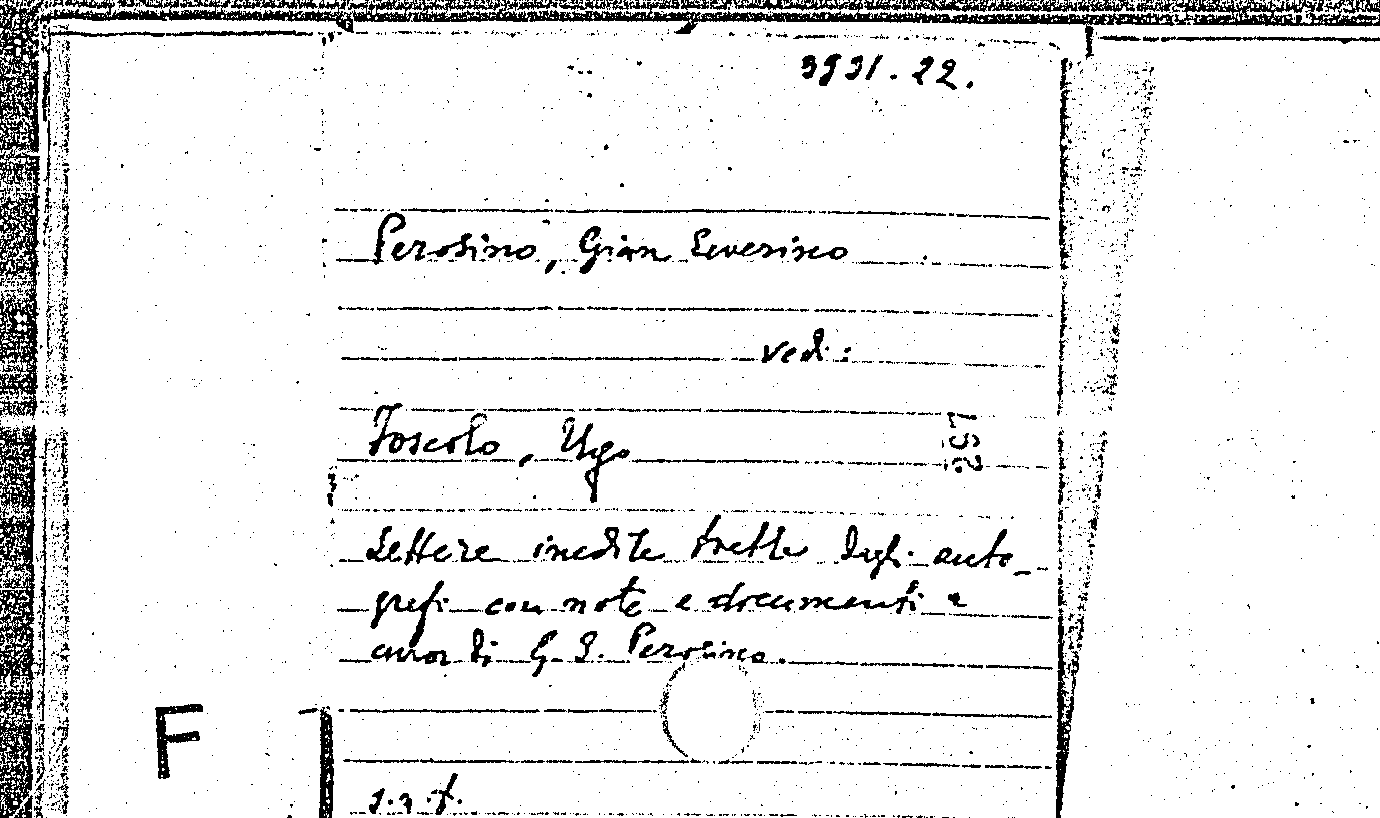 3931.22.
Perosino, Gian Severino
vedi:
Foscolo, Ugo
257
Lettere inedite tratte dagli auto_
grafi con note e documenti a
cura di G. S. Perosino.
F
s.n.t.